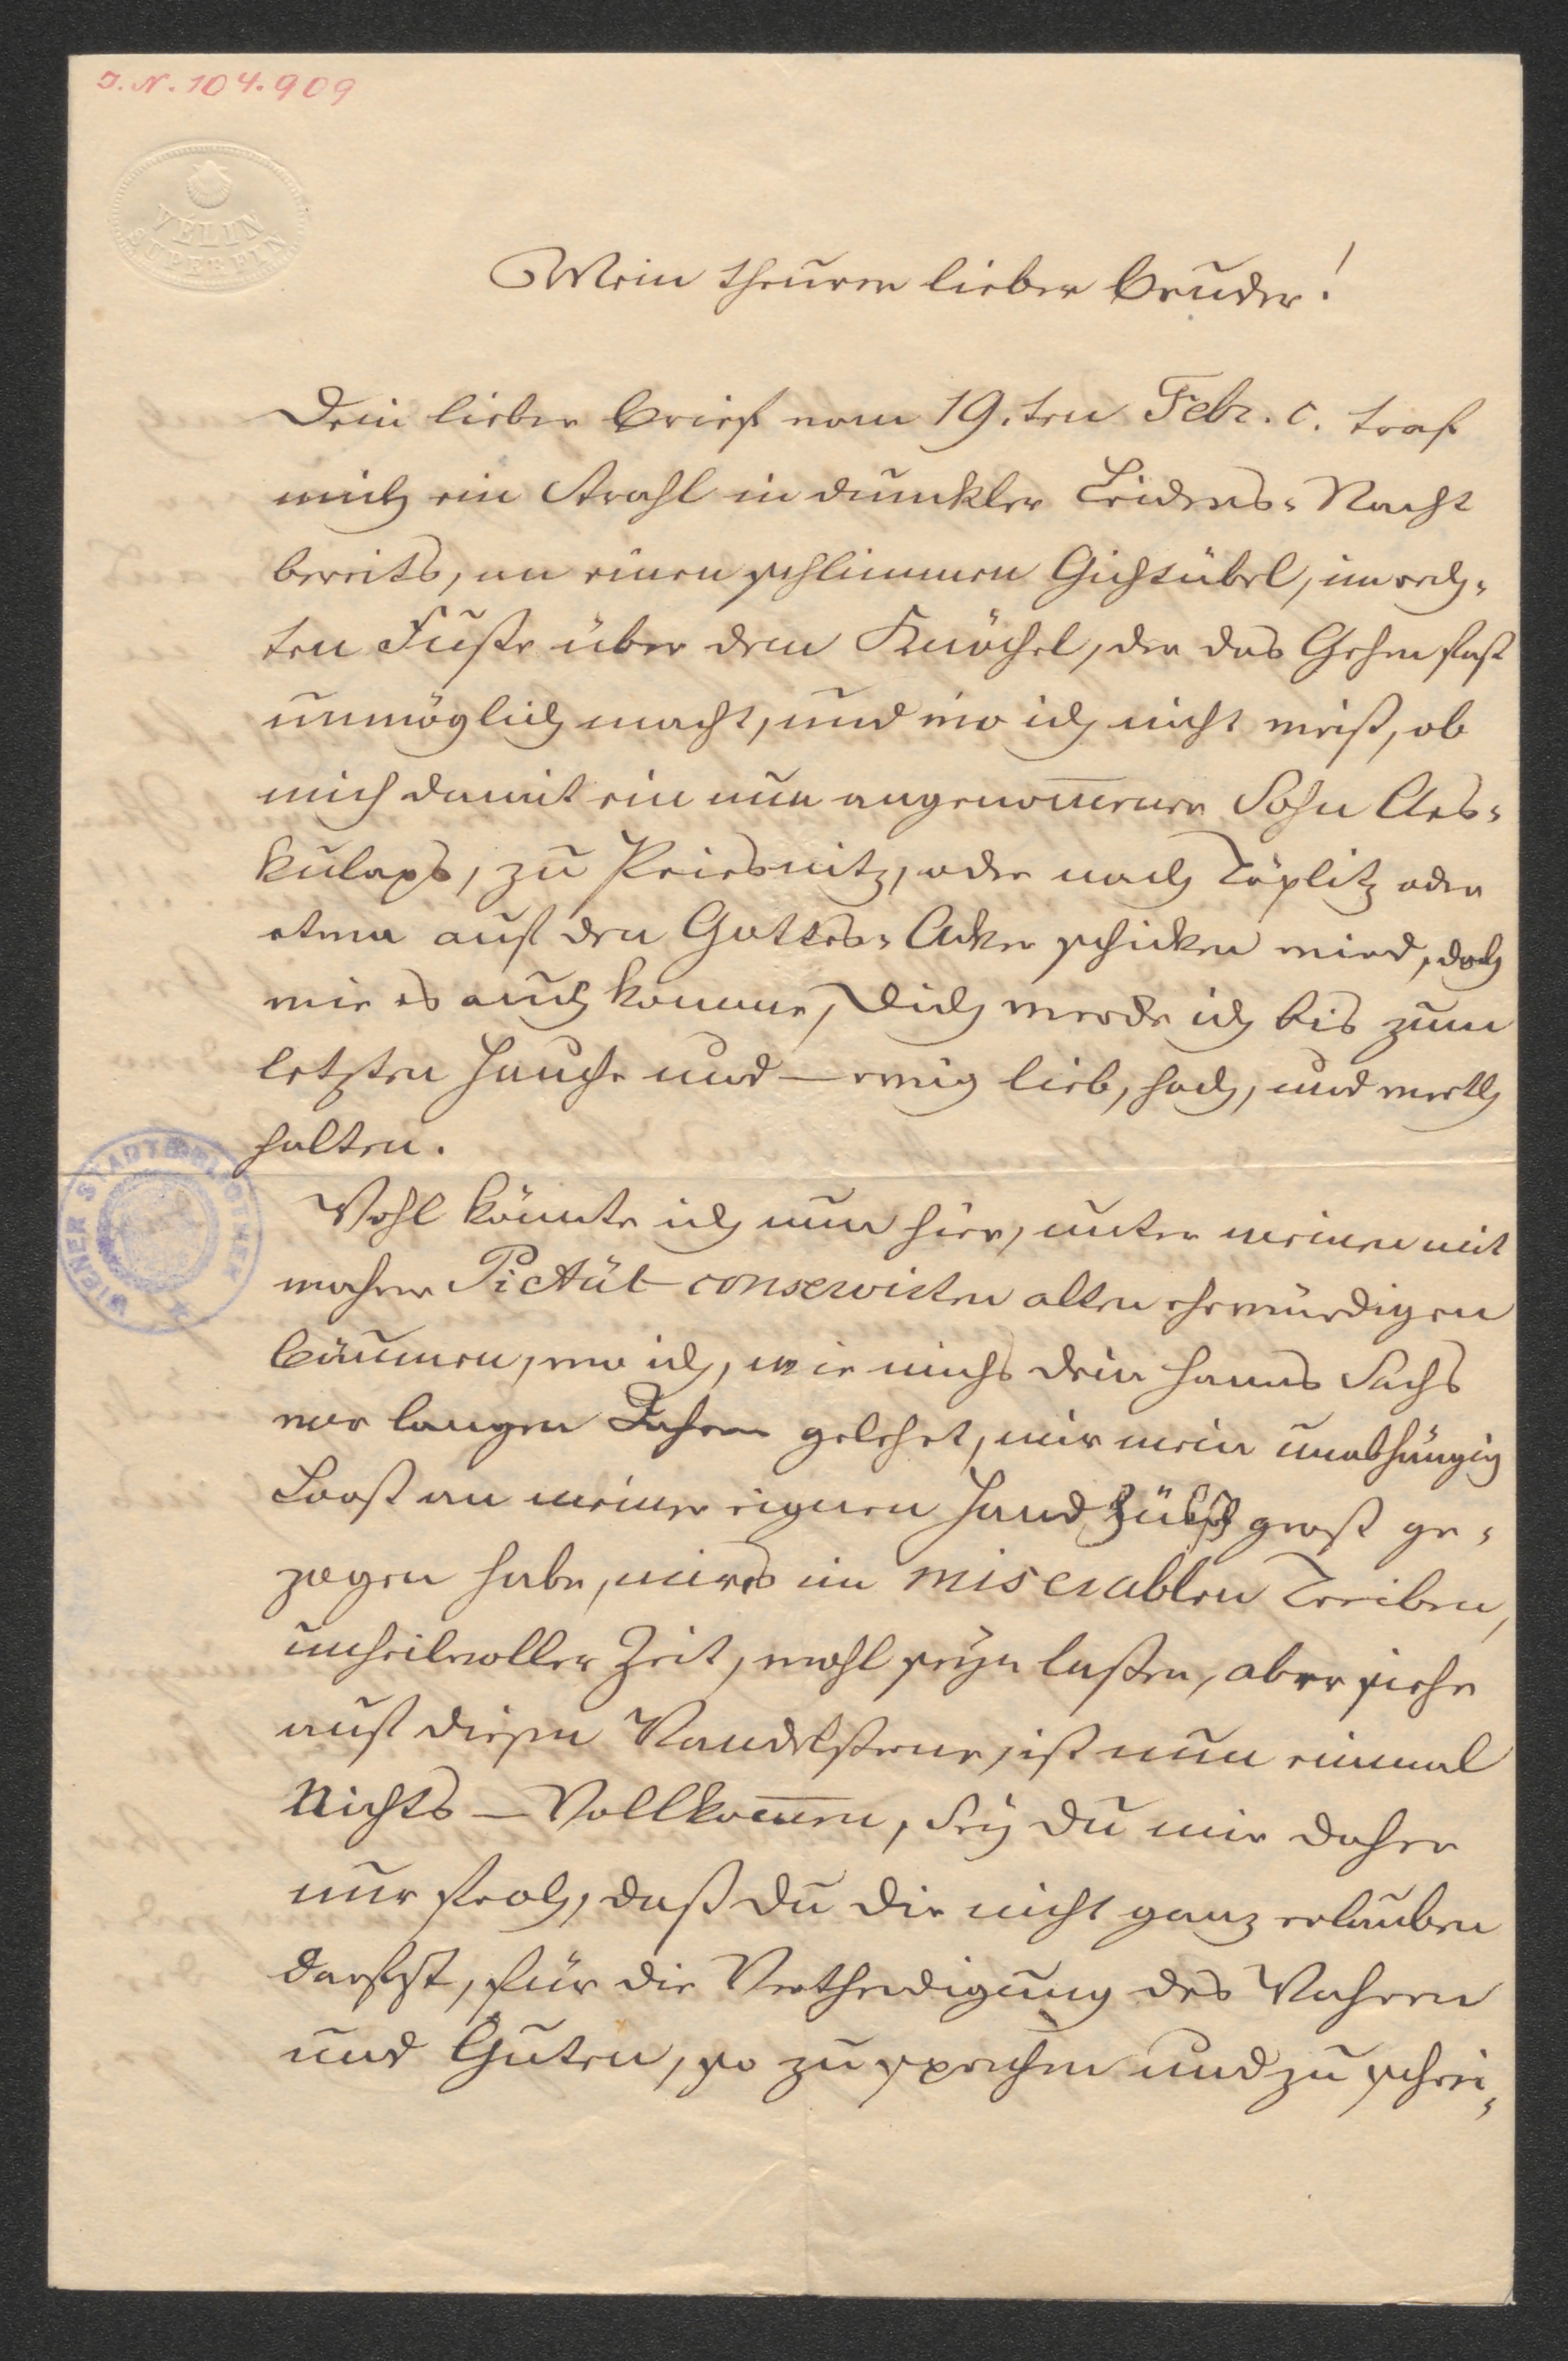 I. N. 104.909
VELIN
SUPERFIN
Mein theurer lieber Bruder!
Dein lieber Brief vom 19.ten Febr. c. traf
mich ein Strahl in dunkler Leidens-Nacht
bereits, an einen schlimmen Gichtübel, im rech-
ten Fuße über dem Knöchel, der das Gehen fast
unmöglich macht, und wo ich nicht weiß, ob
mich damit ein nun angenom̄ener Sohn Aes-
kulaps, zu Priesnitz, oder nach Töplitz oder
etwa auf den Gottes-Acker schicken wird, doch
wie es auch komme, Dich werde ich bis zum
letzten Hauche und — ewig lieb, hoch, und werth
halten.
WIENER STADTBIBLIOTHEK
Wohl könnte ich nun hier, unter meinen mit
wahrer Pietät conservirten alten ehrwürdigen
Bäumen, wo ich, wie michs dein Hanns Sachs
vor langen Jahren gelehrt, mir mein unabhängig
Looß an meiner eignen Hand hübsch groß ge-
zogen habe, mirs im miserablen Treiben,
unheilvoller Zeit, wohl seyn laßen, aber siehe
auf diesen Wandelsterne, ist nun einmal
Nichts — Vollkom̄en, Sey du mir daher
nur froh, daß du dir nicht ganz erlauben
darfst, für die Vertheidigung des Wahren
und Guten, so zu sprechen und zu schrei-